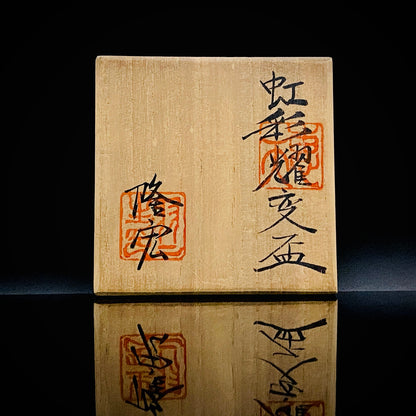 虹彩耀変盃
隆宏